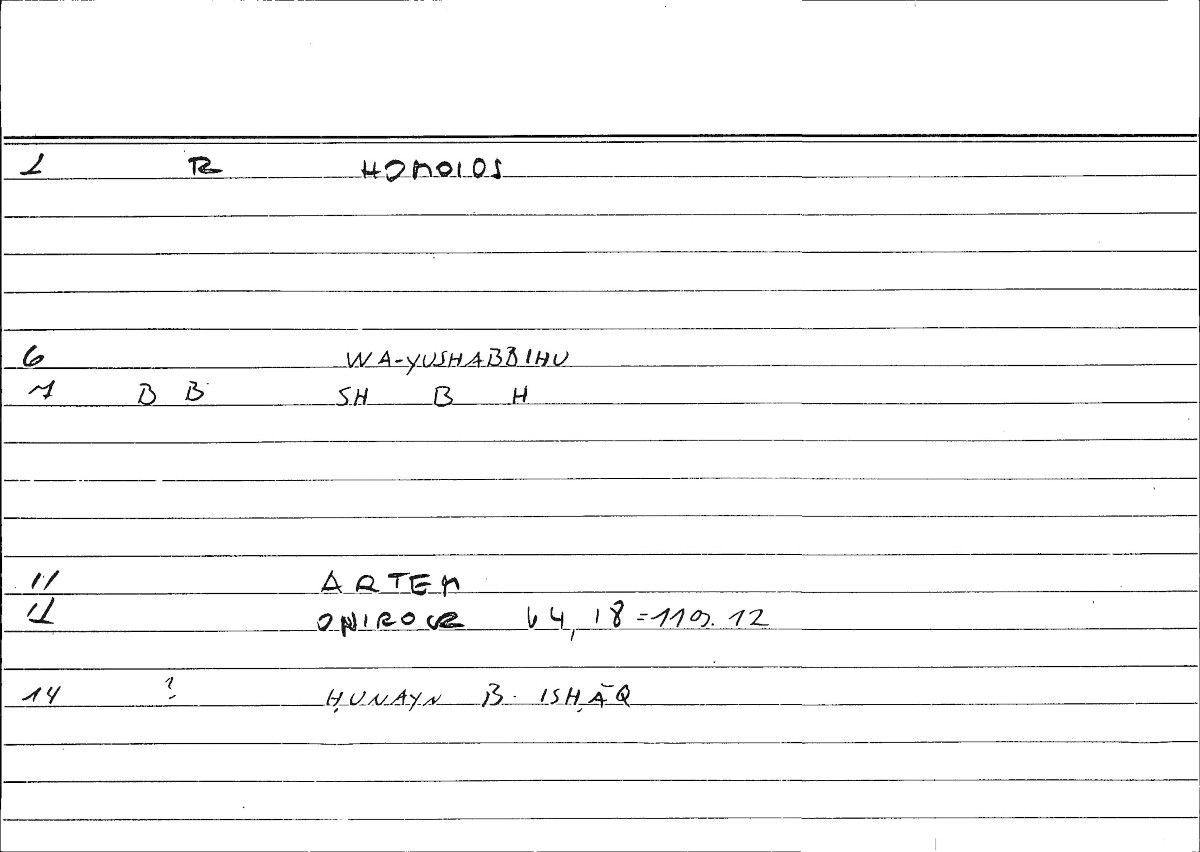 1 R HOMOIOS
6 WA-YUSHABBIHU
7 B B SH B H
11 ARTEM
12 ONIROCR 64, 18 = 119. 12
14 ? ḤUNAYN B. ISḤĀQ